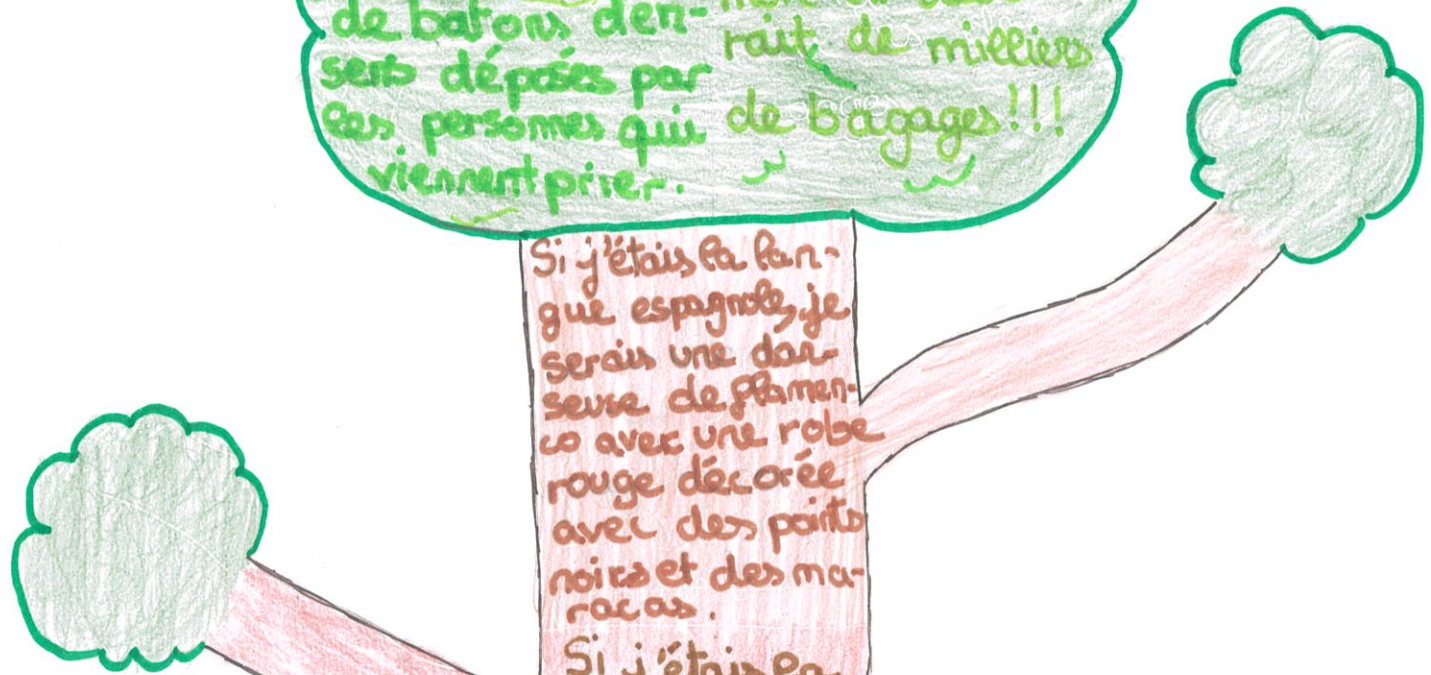 de batons d'en-
sens déposés par
les personnes qui
viennent prier.
rait de milliers
de bagages!!!
Si j'étais la lan-
gue espagnole, je
serais une dan-
seuse de flamen-
co avec une robe
rouge décorée
avec des points
noirs et des ma-
racas.
Si j'étais la